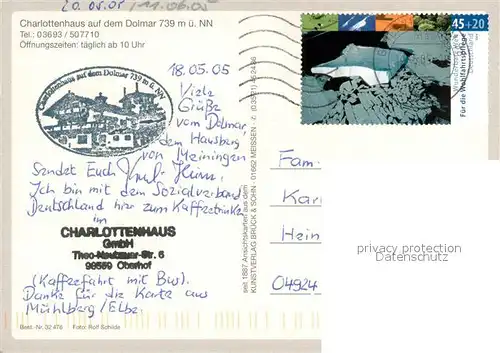 20.05.05 11.06.05
Charlottenhaus auf dem Dolmar 739 m ü. NN
Tel.: 03693 / 507710
Öffnungszeiten: täglich ab 10 Uhr
Charlottenhaus auf dem Dolmar 739 m ü. NN
18.05.05
Viele
Grüße
vom Dolmar,
dem Hausberg
von Meiningen
Sendet Euch
Ich bin mit dem Sozialverband
Deutschland hier zum Kaffeetrinken
im
CHARLOTTENHAUS
GmbH
Theo-Neubauer-Str. 6
98559 Oberhof
(Kaffeefahrt mit Bus).
Danke für die Karte aus
Mühlberg/Elbe.
Best.-Nr. 32 476 Foto: Rolf Schilde
seit 1887 Ansichtskarten aus dem
KUNSTVERLAG BRÜCK & SOHN · 01662 MEISSEN
45+20
Für die Wohlfahrtspflege
Deutschland
Fam
Kar
Hein
04924
privacy protection
Datenschutz